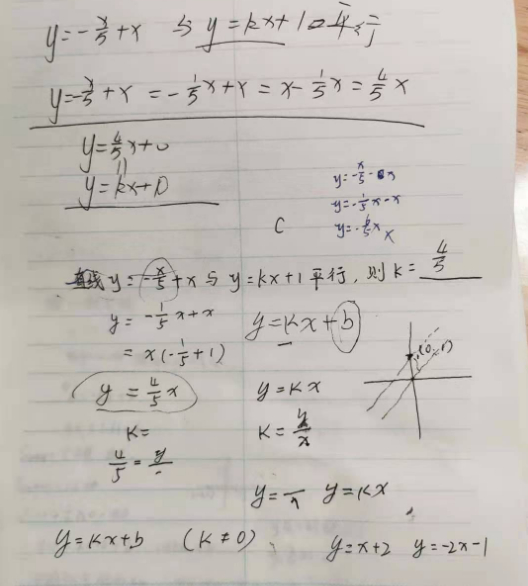 y=-x/5+x 与 y=kx+1 平行
y=-x/5+x = -1/5x+x = x-1/5x = 4/5x
y=4/5x+0
y=kx+0
y=-x/5-x
y=-1/5x-x
C
直线 y=-x/5+x 与 y=kx+1 平行,则 k= 4/5
y = -1/5x+x
y=kx+b
= x(-1/5+1)
(0,1)
y = 4/5x
y=kx
k=
k=y/x
4/5=y/
y= y=kx
y=kx+b (k≠0)
y=x+2 y=-2x-1